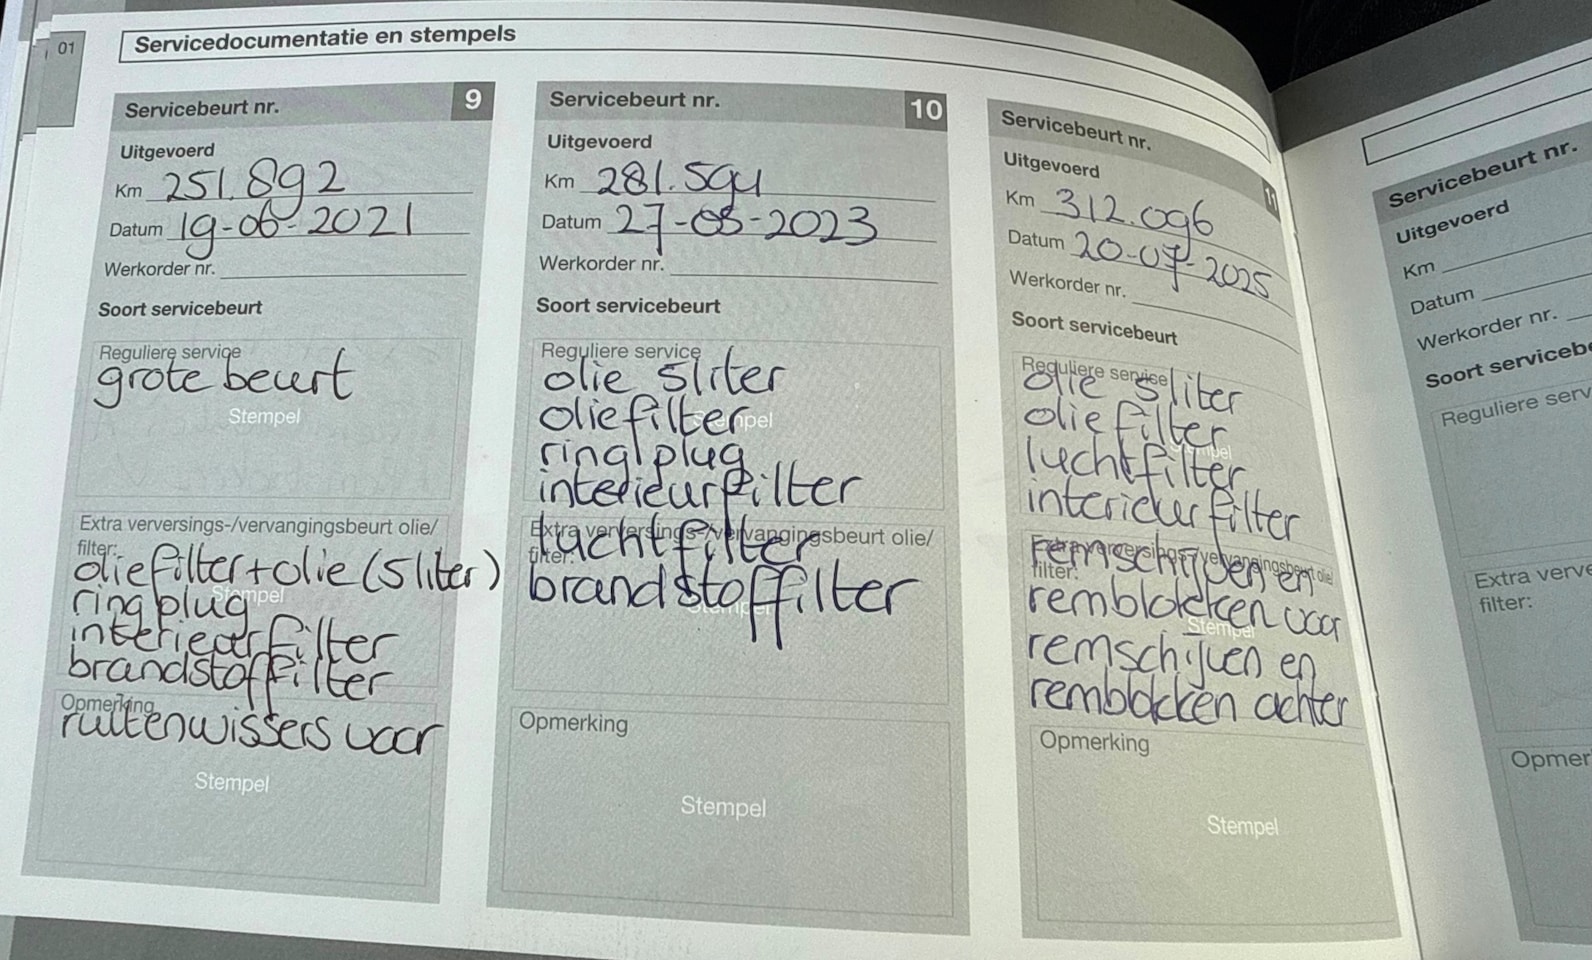 01
Servicedocumentatie en stempels
Servicebeurt nr. 9
Uitgevoerd
Km 251.892
Datum 19-06-2021
Werkorder nr.
Soort servicebeurt
Reguliere service
grote beurt
Stempel
Extra verversings-/vervangingsbeurt olie/
filter:
oliefilter+olie (5 liter)
Stempel
ring plug
interieurfilter
brandstoffilter
Opmerking
ruitenwissers voor
Stempel
Servicebeurt nr. 10
Uitgevoerd
Km 281.594
Datum 27-05-2023
Werkorder nr.
Soort servicebeurt
Reguliere service
olie 5liter
oliefilter
Stempel
ring plug
interieurfilter
Extra verversings-/vervangingsbeurt olie/
filter:
luchtfilter
brandstoffilter
Stempel
Opmerking
Stempel
Servicebeurt nr. 11
Uitgevoerd
Km 312.096
Datum 20-07-2025
Werkorder nr.
Soort servicebeurt
Reguliere service
olie 5liter
oliefilter
Stempel
luchtfilter
interieurfilter
Extra verversings-/vervangingsbeurt olie/
filter:
remschijven en
remblokken voor
Stempel
remschijven en
remblokken achter
Opmerking
Stempel
Servicebeurt nr.
Uitgevoerd
Km
Datum
Werkorder nr.
Soort serviceb
Reguliere serv
Extra verve
filter:
Opmer